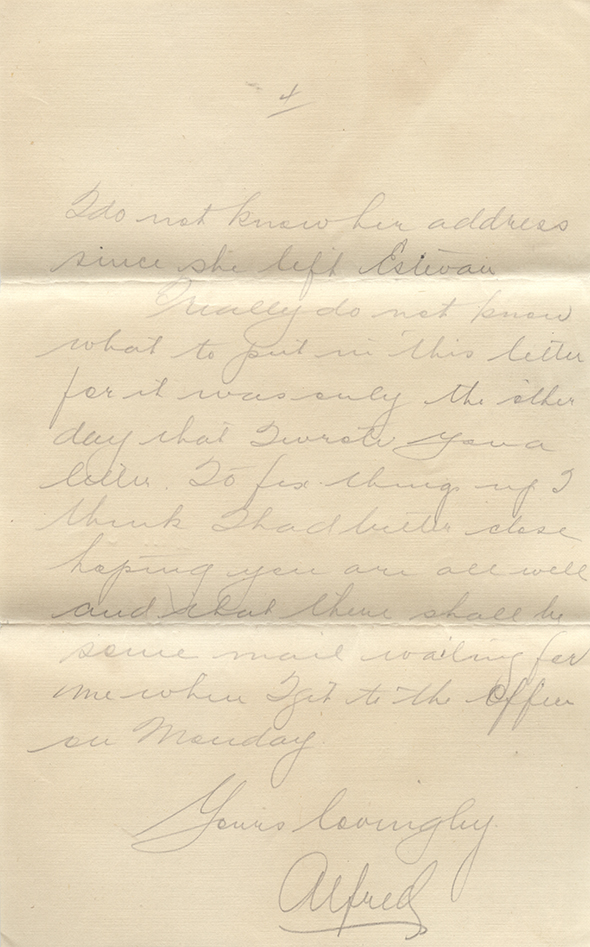 4
I do not know her address
since she left Estevan
I really do not know
what to put in this letter
for it was only the other
day that I wrote you a
letter. To fix things up I
think I had better close
hoping you are all well
and that there shall be
some mail waiting for
me when I get to the Office
on Monday.
Yours lovingly.
Alfred